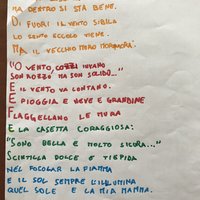 MA DENTRO SI STA BENE.
DI FUORI IL VENTO SIBILA
LO SENTO ECCOLO VIENE.
MA IL VECCHIO MURO MORMORA:
"O VENTO, COZZI INVANO
SON ROZZO MA SON SOLIDO..."
E IL VENTO VA LONTANO.
E PIOGGIA E NEVE E GRANDINE
FLAGELLANO LE MURA
E LA CASETTA CORAGGIOSA:
"SONO BELLA E MOLTO SICURA..."
SCINTILLA DOLCE E TIEPIDA
NEL FOCOLAR LA FIAMMA
E IL SOL SEMPRE L'ILLUMINA
QUEL SOLE È LA MIA MAMMA.